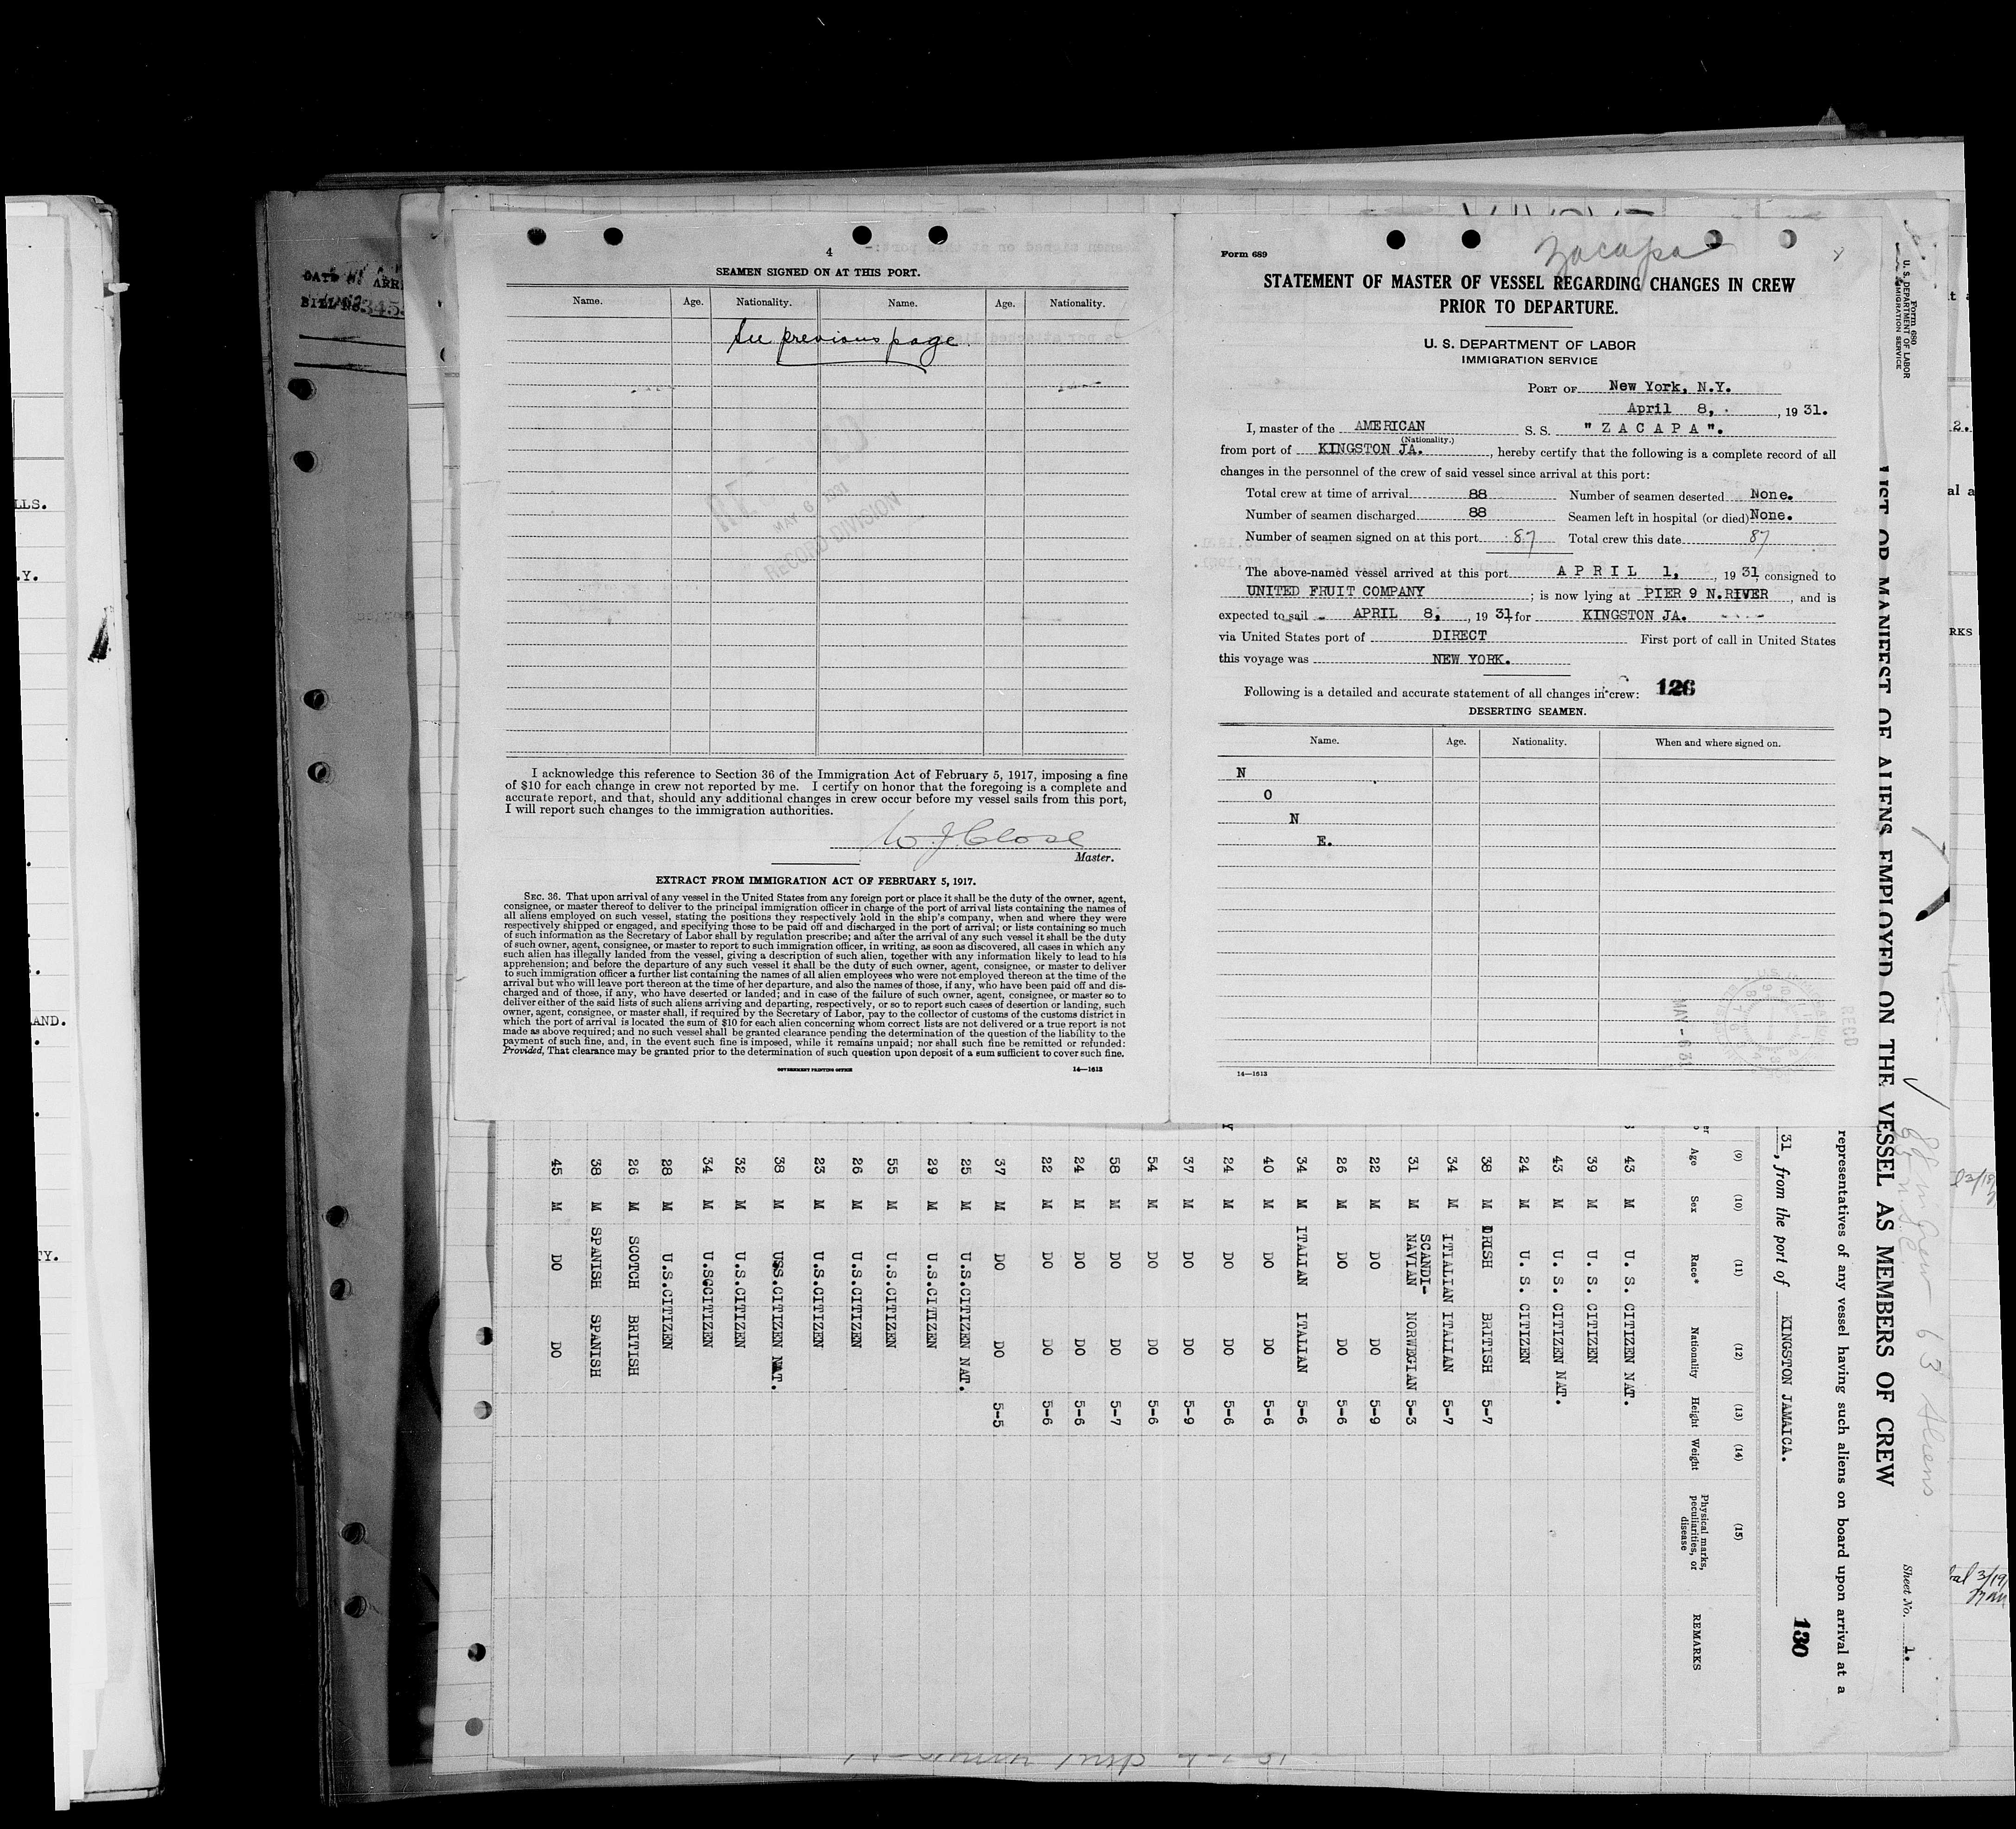 4
SEAMEN SIGNED ON AT THIS PORT.
Name. Age. Nationality. Name. Age. Nationality.
See previous page.
MAY 6 1931
RECORD DIVISION
I acknowledge this reference to Section 36 of the Immigration Act of February 5, 1917, imposing a fine
of $10 for each change in crew not reported by me. I certify on honor that the foregoing is a complete and
accurate report, and that, should any additional changes in crew occur before my vessel sails from this port,
I will report such changes to the immigration authorities.
W. J. Close
Master.
EXTRACT FROM IMMIGRATION ACT OF FEBRUARY 5, 1917.
SEC. 36. That upon arrival of any vessel in the United States from any foreign port or place it shall be the duty of the owner, agent,
consignee, or master thereof to deliver to the principal immigration officer in charge of the port of arrival lists containing the names of
all aliens employed on such vessel, stating the positions they respectively hold in the ship's company, when and where they were
respectively shipped or engaged, and specifying those to be paid off and discharged in the port of arrival; or lists containing so much
of such information as the Secretary of Labor shall by regulation prescribe; and after the arrival of any such vessel it shall be the duty
of such owner, agent, consignee, or master to report to such immigration officer, in writing, as soon as discovered, all cases in which any
such alien has illegally landed from the vessel, giving a description of such alien, together with any information likely to lead to his
apprehension; and before the departure of any such vessel it shall be the duty of such owner, agent, consignee, or master to deliver
to such immigration officer a further list containing the names of all alien employees who were not employed thereon at the time of the
arrival but who will leave port thereon at the time of her departure, and also the names of those, if any, who have been paid off and dis-
charged and of those, if any, who have deserted or landed; and in case of the failure of such owner, agent, consignee, or master so to
deliver either of the said lists of such aliens arriving and departing, respectively, or so to report such cases of desertion or landing, such
owner, agent, consignee, or master shall, if required by the Secretary of Labor, pay to the collector of customs of the customs district in
which the port of arrival is located the sum of $10 for each alien concerning whom correct lists are not delivered or a true report is not
made as above required; and no such vessel shall be granted clearance pending the determination of the question of the liability to the
payment of such fine, and, in the event such fine is imposed, while it remains unpaid; nor shall such fine be remitted or refunded:
Provided, That clearance may be granted prior to the determination of such question upon deposit of a sum sufficient to cover such fine.
GOVERNMENT PRINTING OFFICE 14—1613
Zacapa
Form 689
STATEMENT OF MASTER OF VESSEL REGARDING CHANGES IN CREW
PRIOR TO DEPARTURE.
U. S. DEPARTMENT OF LABOR
IMMIGRATION SERVICE
PORT OF New York, N.Y.
April 8, , 1931.
I, master of the AMERICAN S. S. "ZACAPA".
(Nationality.)
from port of KINGSTON JA. , hereby certify that the following is a complete record of all
changes in the personnel of the crew of said vessel since arrival at this port:
Total crew at time of arrival 88 Number of seamen deserted None.
Number of seamen discharged 88 Seamen left in hospital (or died) None.
Number of seamen signed on at this port 87 Total crew this date 87
The above-named vessel arrived at this port APRIL 1, , 1931 consigned to
UNITED FRUIT COMPANY ; is now lying at PIER 9 N.RIVER , and is
expected to sail APRIL 8, , 1931 for KINGSTON JA.
via United States port of DIRECT First port of call in United States
this voyage was NEW YORK.
Following is a detailed and accurate statement of all changes in crew: 126
DESERTING SEAMEN.
Name. Age. Nationality. When and where signed on.
N
O
N
E.
REC'D
MAY - 6 31
14—1613
Form 680
U. S. DEPARTMENT OF LABOR
IMMIGRATION SERVICE
Sheet No. 1.
88 in Crew 63 Aliens
LIST OR MANIFEST OF ALIENS EMPLOYED ON THE VESSEL AS MEMBERS OF CREW
representatives of any vessel having such aliens on board upon arrival at a
31, from the port of KINGSTON JAMAICA.
130
(9) (10) (11) (12) (13) (14) (15)
Age Sex Race* Nationality Height Weight Physical marks, peculiarities, or disease REMARKS
43 M U. S. CITIZEN NAT.
39 M U. S. CITIZEN
43 M U. S. CITIZEN NAT.
24 M U. S. CITIZEN
38 M IRISH BRITISH 5-7
34 M ITIALIAN ITALIAN 5-7
31 M SCANDI-NAVIAN NORWEGIAN 5-3
22 M DO DO 5-9
26 M DO DO 5-6
34 M ITALIAN ITALIAN 5-6
40 M DO DO 5-6
24 M DO DO 5-6
37 M DO DO 5-9
54 M DO DO 5-6
58 M DO DO 5-7
24 M DO DO 5-6
22 M DO DO 5-6
37 M DO DO 5-5
25 M U.S.CITIZEN NAT.
29 M U.S.CITIZEN
55 M U.S.CITIZEN
26 M U.S.CITIZEN
23 M U.S.CITIZEN
38 M USS.CITIZEN NAT.
32 M U.S.CITIZEN
34 M U.SGCITIZEN
28 M U.S.CITIZEN
26 M SCOTCH BRITISH
38 M SPANISH SPANISH
45 M DO DO